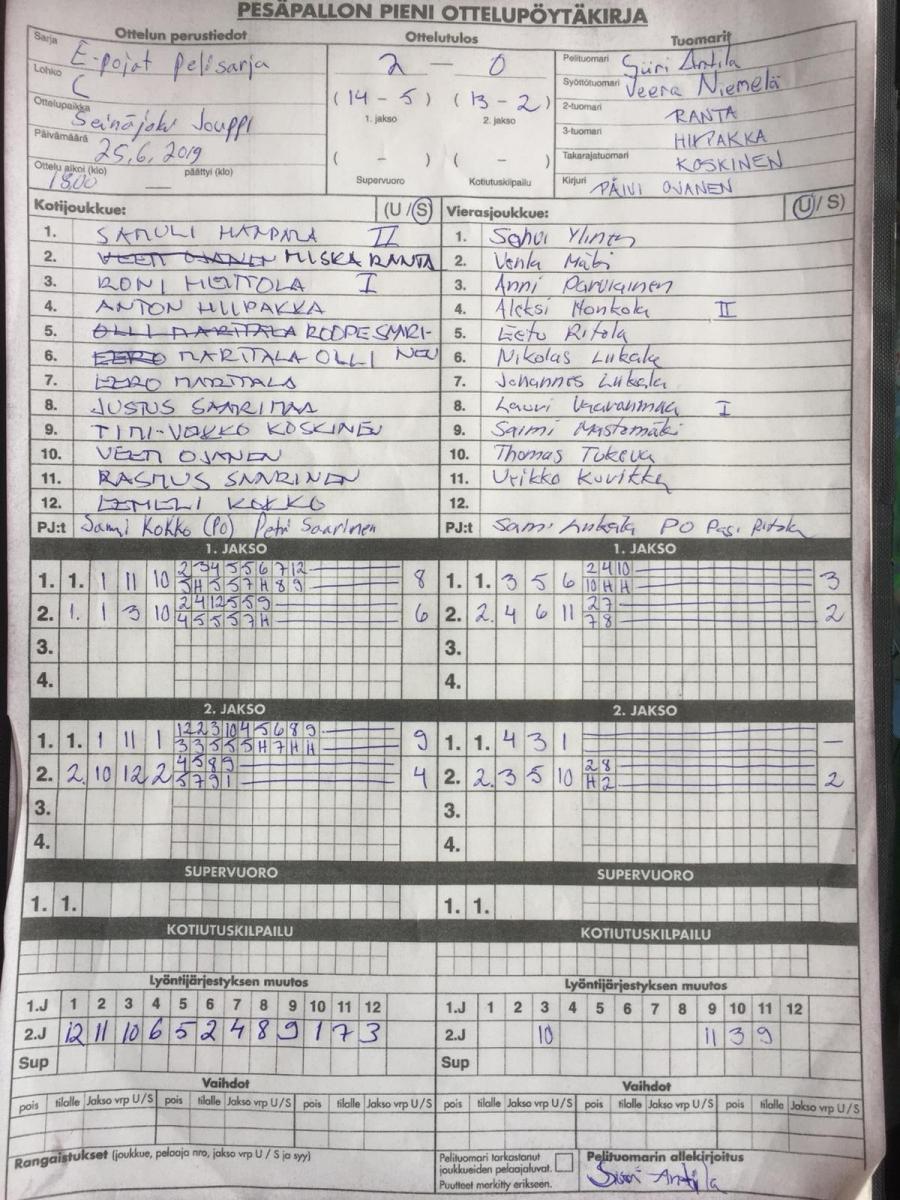 PESÄPALLON PIENI OTTELUPÖYTÄKIRJA
Ottelun perustiedot
Sarja E-pojat pelisarja
Lohko C
Ottelupaikka Seinäjoki Jouppi
Päivämäärä 25.6.2019
Ottelu alkoi (klo) 18.00 päättyi (klo)
Ottelutulos
2 — 0
(14 - 5) (13 - 2)
1. jakso 2. jakso
( - ) ( - )
Supervuoro Kotiutuskilpailu
Tuomarit
Pelituomari Siiri Antila
Syöttötuomari Veera Niemelä
2-tuomari RANTA
3-tuomari HIIPAKKA
Takarajatuomari KOSKINEN
Kirjuri PÄIVI OJANEN
Kotijoukkue: (U / S)
1. SAMULI HAAPALA II
2. VEETI OJANEN MISKA RANTA
3. RONI HUTTOLA I
4. ANTON HIIPAKKA
5. OLLI MARITALA ROOPE SAARI-
6. EERO MARITALA OLLI NEN
7. EERO MARITALA
8. JUSTUS SAARIMAA
9. TIMI-VEKKO KOSKINEN
10. VEETI OJANEN
11. RASMUS SAARINEN
12. EEMELI KOKKO
PJ:t Sami Kokko (PO) Petri Saarinen
Vierasjoukkue: (U / S)
1. Ylinen
2. Venla Mäki
3. Anni Parviainen
4. Aleksi Honkola II
5. Eetu Ritola
6. Nikolas Liikala
7. Johannes Liikala
8. Lauri I
9. Saimi Mastomäki
10. Thomas Tokeva
11. Kuvikka
12.
PJ:t Sami PO Pasi Ritola
1. JAKSO
1. 1. 1 11 10 2 3 4 5 5 6 7 12 8
5 H 5 5 7 H 8 9
2. 1. 1 3 10 2 4 12 5 5 9 6
4 5 5 5 7 H
3.
4.
1. JAKSO
1. 1. 3 5 6 2 4 10 3
10 H H
2. 2. 4 6 11 2 7 2
7 8
3.
4.
2. JAKSO
1. 1. 1 11 1 12 2 3 10 4 5 6 8 9 9
3 3 5 5 5 H 7 H H
2. 2. 10 12 2 4 5 8 9 4
5 7 9 1
3.
4.
2. JAKSO
1. 1. 4 3 1 —
2. 2. 3 5 10 2 8 2
H 2
3.
4.
SUPERVUORO
1. 1.
SUPERVUORO
1. 1.
KOTIUTUSKILPAILU
KOTIUTUSKILPAILU
Lyöntijärjestyksen muutos
1.J 1 2 3 4 5 6 7 8 9 10 11 12
2.J 12 11 10 6 5 2 4 8 9 1 7 3
Sup
Lyöntijärjestyksen muutos
1.J 1 2 3 4 5 6 7 8 9 10 11 12
2.J 10 11 3 9
Sup
Vaihdot
pois tilalle Jakso vrp U/S pois tilalle Jakso vrp U/S pois tilalle Jakso vrp U/S
Vaihdot
pois tilalle Jakso vrp U/S pois tilalle Jakso vrp U/S pois tilalle Jakso vrp U/S
Rangaistukset (joukkue, pelaaja nro, jakso vrp U / S ja syy)
Pelituomari tarkastanut
joukkueiden pelaajaluvat.
Puutteet merkitty erikseen.
Pelituomarin allekirjoitus
Siiri Antila